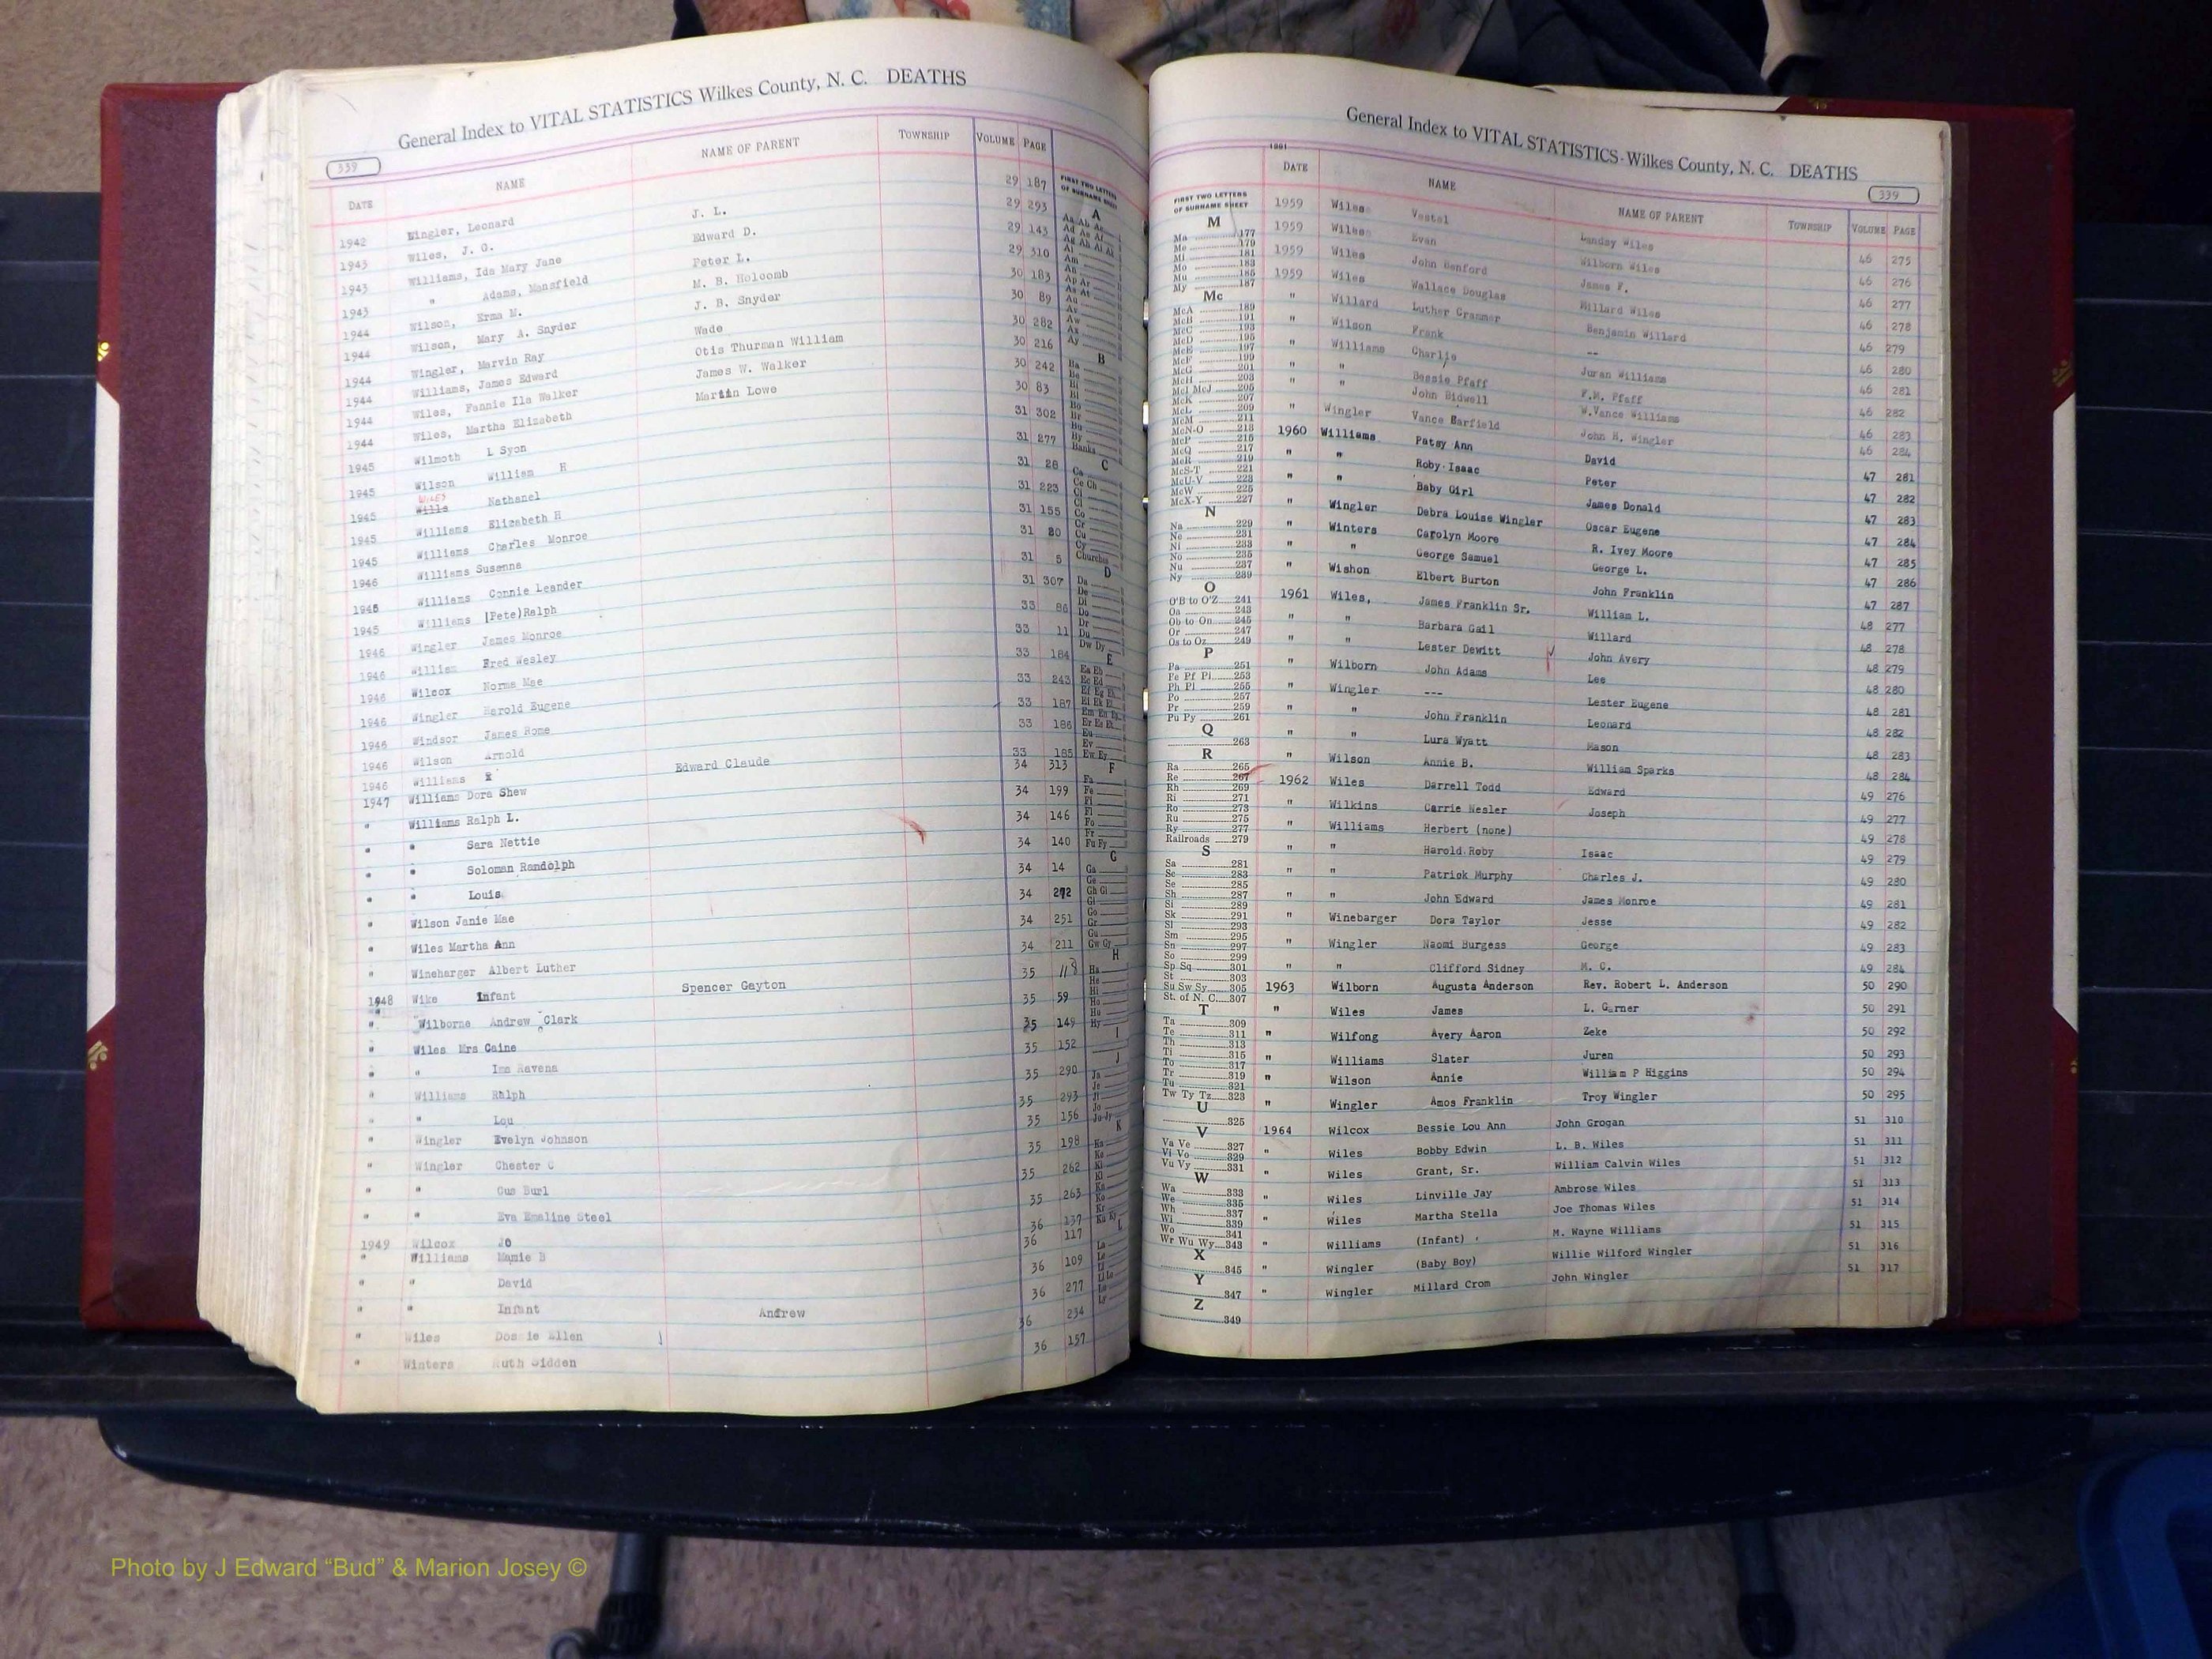 General Index to VITAL STATISTICS Wilkes County, N. C. DEATHS
339
DATE NAME NAME OF PARENT TOWNSHIP VOLUME PAGE
1942 Wingler, Leonard J. L. 29 187
1943 Wiles, J. G. Edward D. 29 293
1943 Williams, Ida Mary Jane Peter L. 29 143
1943 " Adams, Mansfield M. B. Holcomb 29 310
1944 Wilson, Erma M. J. B. Snyder 30 183
1944 Wilson, Mary A. Snyder Wade 30 89
1944 Wingler, Marvin Ray Otis Thurman William 30 282
1944 Williams, James Edward James W. Walker 30 216
1944 Wiles, Fannie Ila Walker Martin Lowe 30 242
1944 Wiles, Martha Elizabeth 30 83
1945 Wilmoth L Syon 31 302
1945 Wilson William H 31 277
1945 WILES Wills Nathanel 31 28
1945 Williams Elizabeth H 31 223
1945 Williams Charles Monroe 31 155
1946 Williams Susanna 31 20
1946 Williams Connie Leander 31 5
1945 Williams (Pete)Ralph 31 307
1946 Wingler James Monroe 33 86
1946 William Fred Wesley 33 11
1946 Wilcox Norma Mae 33 184
1946 Wingler Harold Eugene 33 243
1946 Windsor James Rome 33 187
1946 Wilson Arnold 33 186
1946 Williams 33 185
1947 Williams Dora Shew Edward Claude 34 313
" Williams Ralph L. 34 199
" " Sara Nettie 34 146
" " Soloman Randolph 34 140
" " Louis 34 14
" Wilson Janie Mae 34 272
" Wiles Martha Ann 34 251
" Wineharger Albert Luther 34 211
1948 Wike Infant Spencer Gayton 35 118
" Wilborne Andrew Clark 35 59
" Wiles Mrs Caine 35 149
" " Ima Ravena 35 152
" Williams Ralph 35 290
" " Lou 35 293
" Wingler Evelyn Johnson 35 156
" Wingler Chester C 35 198
" " Gus Burl 35 262
" " Eva Emaline Steel 35 263
1949 Wilcox Jo 36 137
" Williams Mamie B 36 117
" " David 36 109
" " Infant Andrew 36 277
" Wiles Ellen 36 234
" Winters Ruth 36 157
FIRST TWO LETTERS
OF SURNAME SHEET
A
B
Banks
C
Churches
D
E
F
G
H
I
J
K
L
General Index to VITAL STATISTICS-Wilkes County, N. C. DEATHS
339
DATE NAME NAME OF PARENT TOWNSHIP VOLUME PAGE
1959 Wiles Vestal Landsy Wiles 46 275
1959 Wiles Evan Wilborn Wiles 46 276
1959 Wiles John Benford James F. 46 277
1959 Wiles Wallace Douglas Willard Wiles 46 278
" Willard Luther Crammer Benjamin Willard 46 279
" Wilson Frank -- 46 280
" Williams Charlie Juran Williams 46 281
" " Bessie Pfaff F.M. Pfaff 46 282
" " John Bidwell W.Vance Williams 46 283
" Wingler Vance Barfield John H. Wingler 46 284
1960 Williams Patsy Ann David 47 281
" " Roby Isaac Peter 47 282
" " Baby Girl James Donald 47 283
" Wingler Debra Louise Wingler Oscar Eugene 47 284
" Winters Carolyn Moore R. Ivey Moore 47 285
" " George Samuel George L. 47 286
" Wishon Elbert Burton John Franklin 47 287
1961 Wiles, James Franklin Sr. William L. 48 277
" " Barbara Gail Willard 48 278
" " Lester Dewitt John Avery 48 279
" Wilborn John Adams Lee 48 280
" Wingler --- Lester Eugene 48 281
" " John Franklin Leonard 48 282
" " Lura Wyatt Mason 48 283
" Wilson Annie B. William Sparks 48 284
1962 Wiles Darrell Todd Edward 49 276
" Wilkins Carrie Nesler Joseph 49 277
" Williams Herbert (none) 49 278
" " Harold Roby Isaac 49 279
" " Patrick Murphy Charles J. 49 280
" " John Edward James Monroe 49 281
" Winebarger Dora Taylor Jesse 49 282
" Wingler Naomi Burgess George 49 283
" " Clifford Sidney M. C. 49 284
1963 Wilborn Augusta Anderson Rev. Robert L. Anderson 50 290
" Wiles James L. Garner 50 291
" Wilfong Avery Aaron Zeke 50 292
" Williams Slater Juren 50 293
" Wilson Annie William P Higgins 50 294
" Wingler Amos Franklin Troy Wingler 50 295
1964 Wilcox Bessie Lou Ann John Grogan 51 310
" Wiles Bobby Edwin L. B. Wiles 51 311
" Wiles Grant, Sr. William Calvin Wiles 51 312
" Wiles Linville Jay Ambrose Wiles 51 313
" Wiles Martha Stella Joe Thomas Wiles 51 314
" Williams (Infant) M. Wayne Williams 51 315
" Wingler (Baby Boy) Willie Wilford Wingler 51 316
" Wingler Millard Crom John Wingler 51 317
FIRST TWO LETTERS
OF SURNAME SHEET
M
Ma 177
Me 179
Mi 181
Mo 183
Mu 185
My 187
Mc
McA 189
McB 191
McC 193
McD 195
McE 197
McF 199
McG 201
McH 203
McI McJ 205
McK 207
McL 209
McM 211
McN-O 213
McP 215
McQ 217
McR 219
McS-T 221
McU-V 223
McW 225
McX-Y 227
N
Na 229
Ne 231
Ni 233
No 235
Nu 237
Ny 239
O
O'B to O'Z 241
Oa 243
Ob to On 245
Or 247
Os to Oz 249
P
Pa 251
Pe Pf Pl 253
Ph Pi 255
Po 257
Pr 259
Pu Py 261
Q
263
R
Ra 265
Re 267
Rh 269
Ri 271
Ro 273
Ru 275
Ry 277
Railroads 279
S
Sa 281
Sc 283
Se 285
Sh 287
Si 289
Sk 291
Sl 293
Sm 295
Sn 297
So 299
Sp Sq 301
St 303
Su Sw Sy 305
St. of N. C. 307
T
Ta 309
Te 311
Th 313
Ti 315
To 317
Tr 319
Tu 321
Tw Ty Tz 323
U
325
V
Va Ve 327
Vi Vo 329
Vu Vy 331
W
Wa 333
We 335
Wh 337
Wi 339
Wo 341
Wr Wu Wy 343
X
345
Y
347
Z
349
Photo by J Edward “Bud” & Marion Josey ©